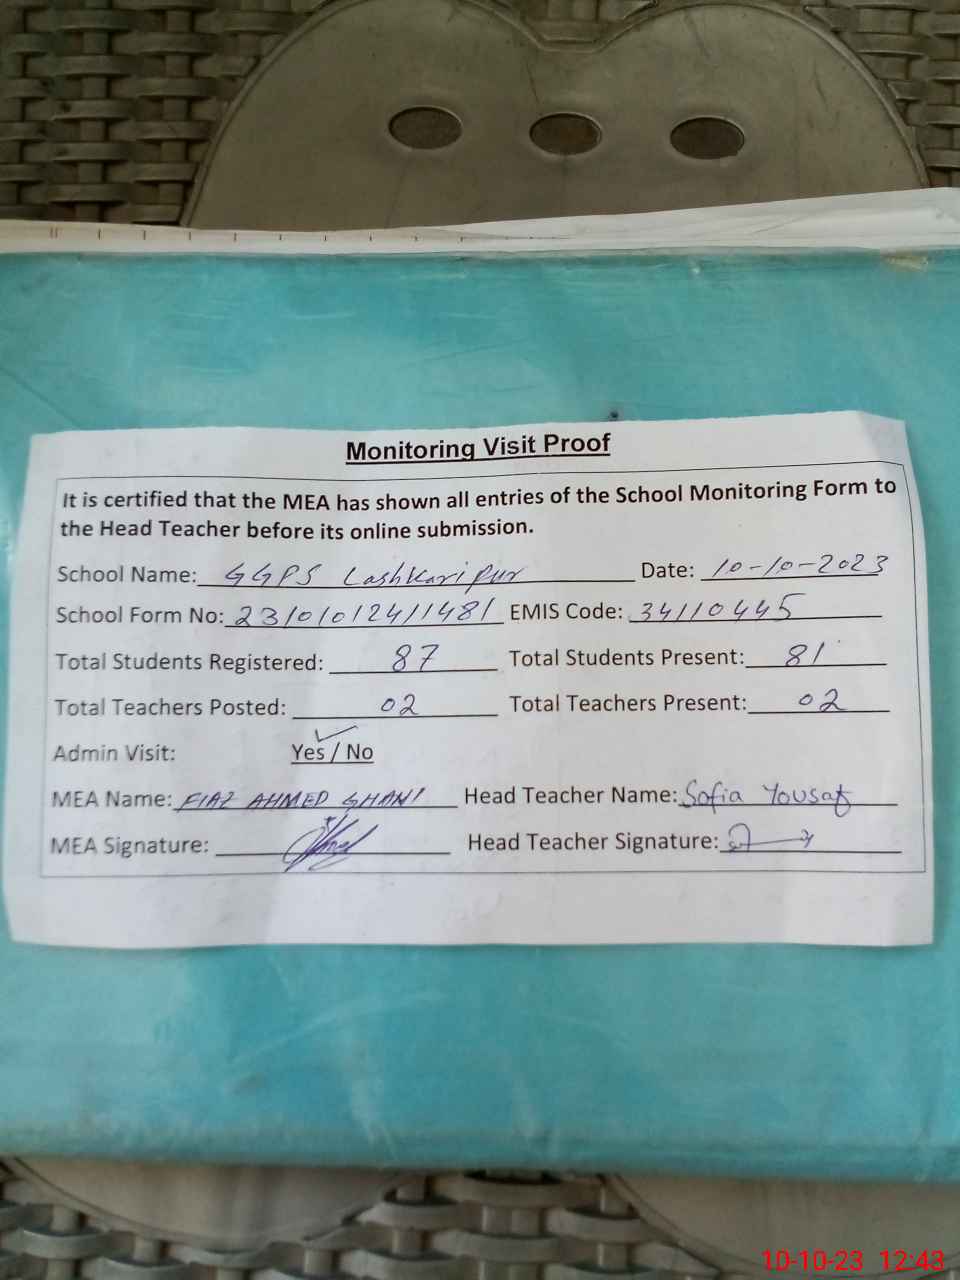 Monitoring Visit Proof
It is certified that the MEA has shown all entries of the School Monitoring Form to
the Head Teacher before its online submission.
School Name: GGPS Lashkaripur Date: 10-10-2023
School Form No: 23101012411481 EMIS Code: 34110445
Total Students Registered: 87 Total Students Present: 81
Total Teachers Posted: 02 Total Teachers Present: 02
Admin Visit: Yes / No
MEA Name: FIAZ AHMED GHANI Head Teacher Name: Sofia Yousaf
MEA Signature: Head Teacher Signature:
10-10-23 12:43